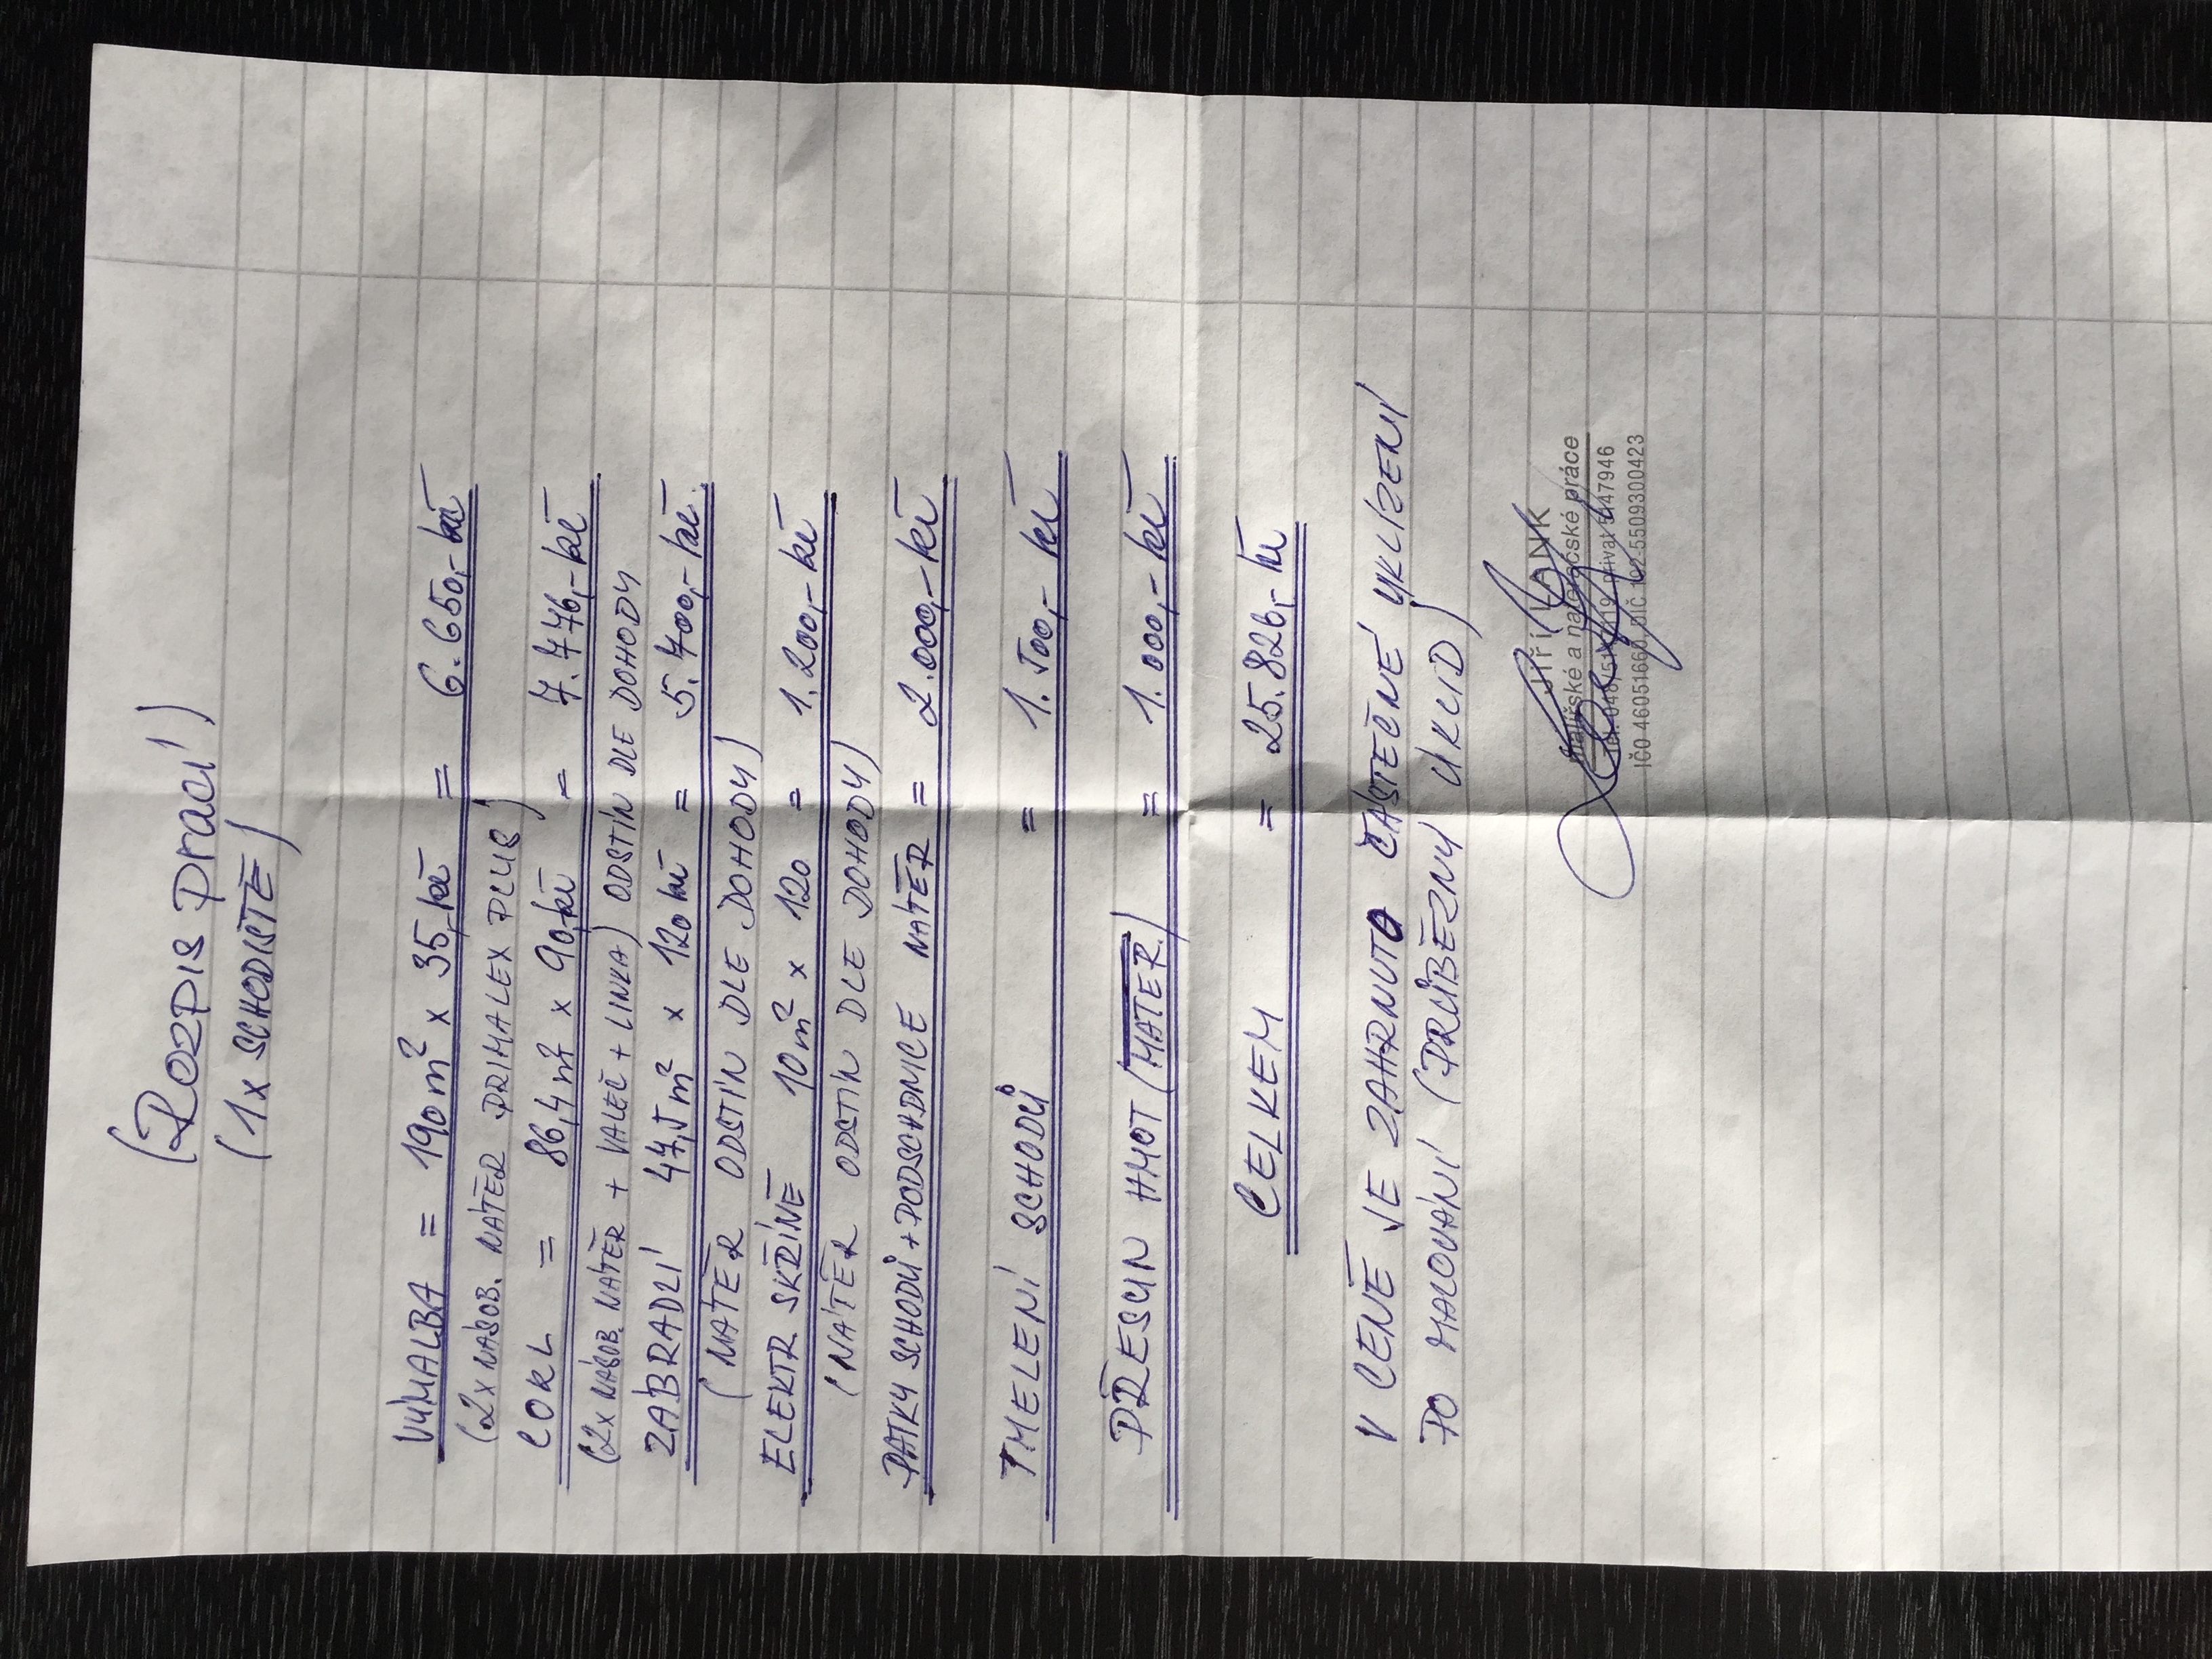 (Rozpis prací)
(1x SCHODIŠTĚ)
VÝMALBA = 190m² x 35,-kč = 6.650,-kč
(2x NÁSOB. NÁTĚR PRIMALEX PLUS)
COKL = 86,4m² x 90,-kč = 7.776,-kč
(2x NÁSOB. NÁTĚR + VÁLEČ + LINKA) ODSTÍN DLE DOHODY
ZÁBRADLÍ 47,5m² x 120 kč = 5.700,-kč.
(NÁTĚR ODSTÍN DLE DOHODY)
ELEKTR SKŘÍNĚ 10m² x 120 = 1.200,-kč
(NÁTĚR ODSTÍN DLE DOHODY)
PATKY SCHODŮ + PODSCHDNICE NÁTĚR = 2.000,-kč
TMELENÍ SCHODŮ = 1.500,-kč
PŘESUN HMOT (MATER.) = 1.000,-kč
CELKEM = 25.826,-kč
V CENĚ JE ZAHRNUTO ČÁSTEČNÉ UKLÍZENÍ
PO MALOVÁNÍ (PRŮBĚŽNÝ ÚKLID)
JIŘÍ
malířské a natěračské práce
privat 5147946
IČO 46051660, DIČ 192-5509300423